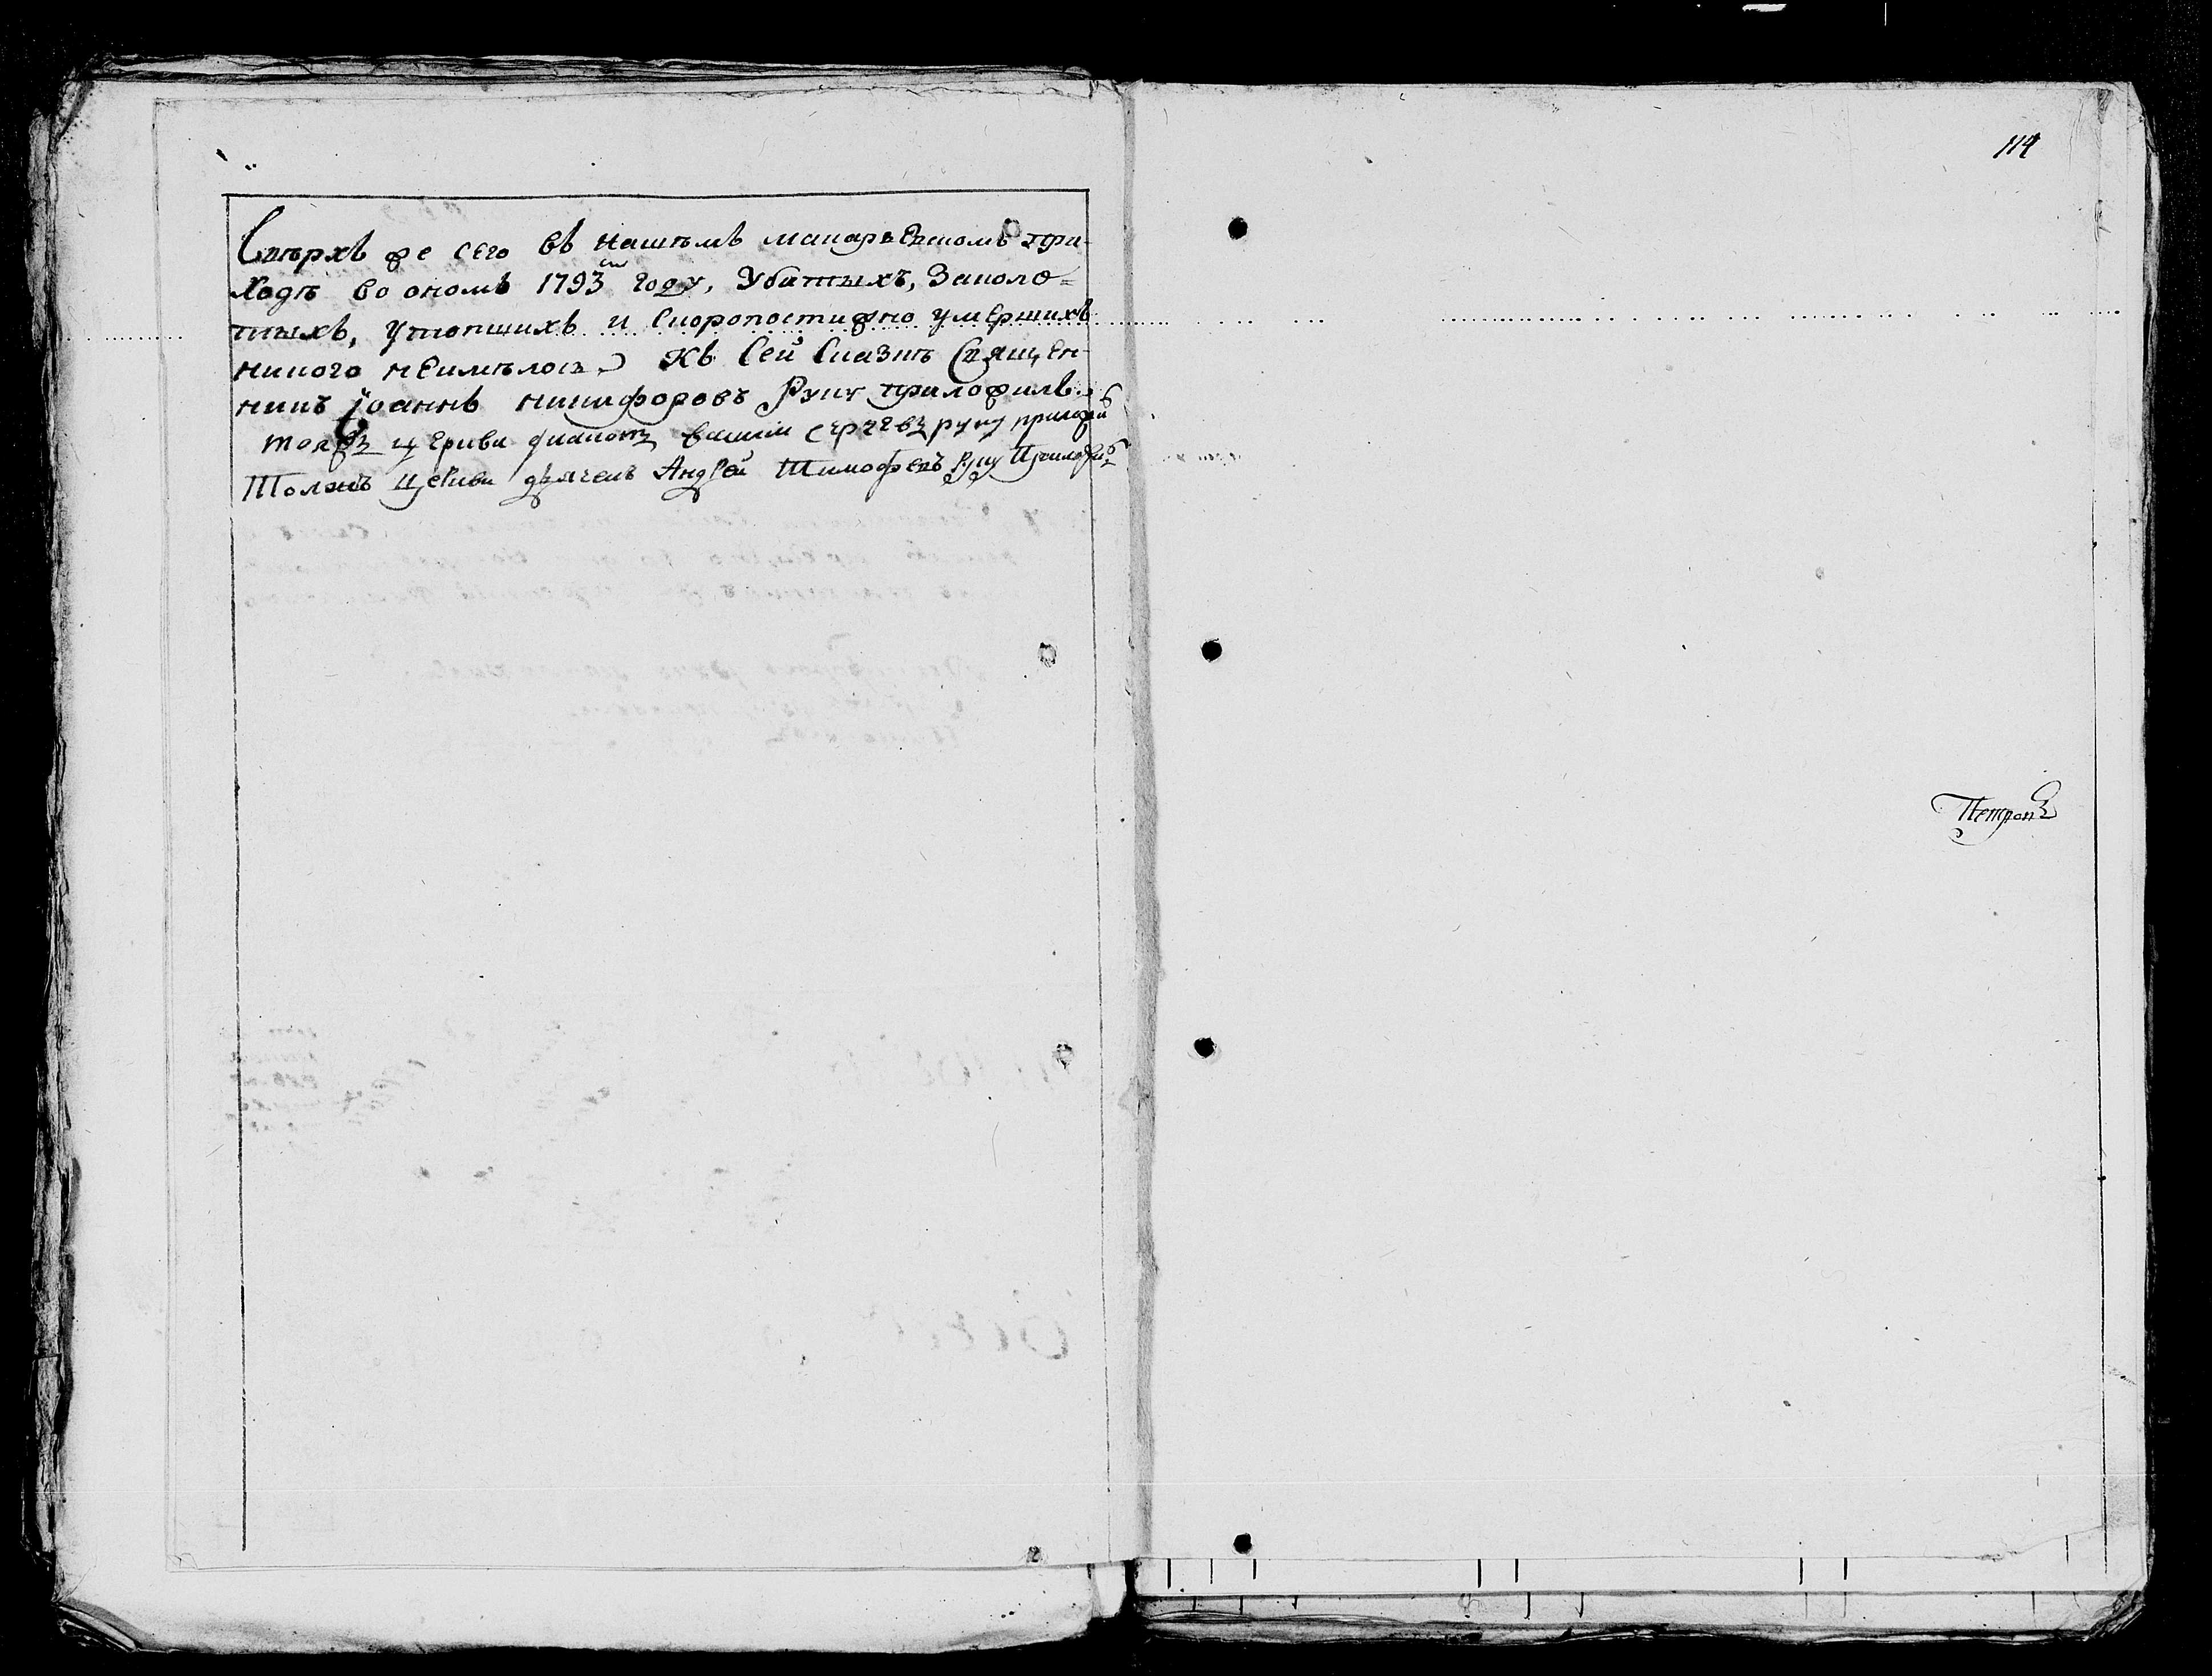 Сверхъ же сего въ нашемъ макарьевскомъ при-
ходѣ во ономъ 1793м году, Убитыхъ, Заколо=
тыхъ, утопшихъ и Скоропостижно умершихъ
никого неимѣлось. Къ Сей Сказкѣ Священ-
никъ Iоаннъ никифоровъ Руку приложилъ.
тояжъ церкви диаконъ василий сергѣевъ руку приложилъ
Тояжъ церкви дьячекъ Андрей Тимофеевъ руку Приложилъ
114
Петровъ